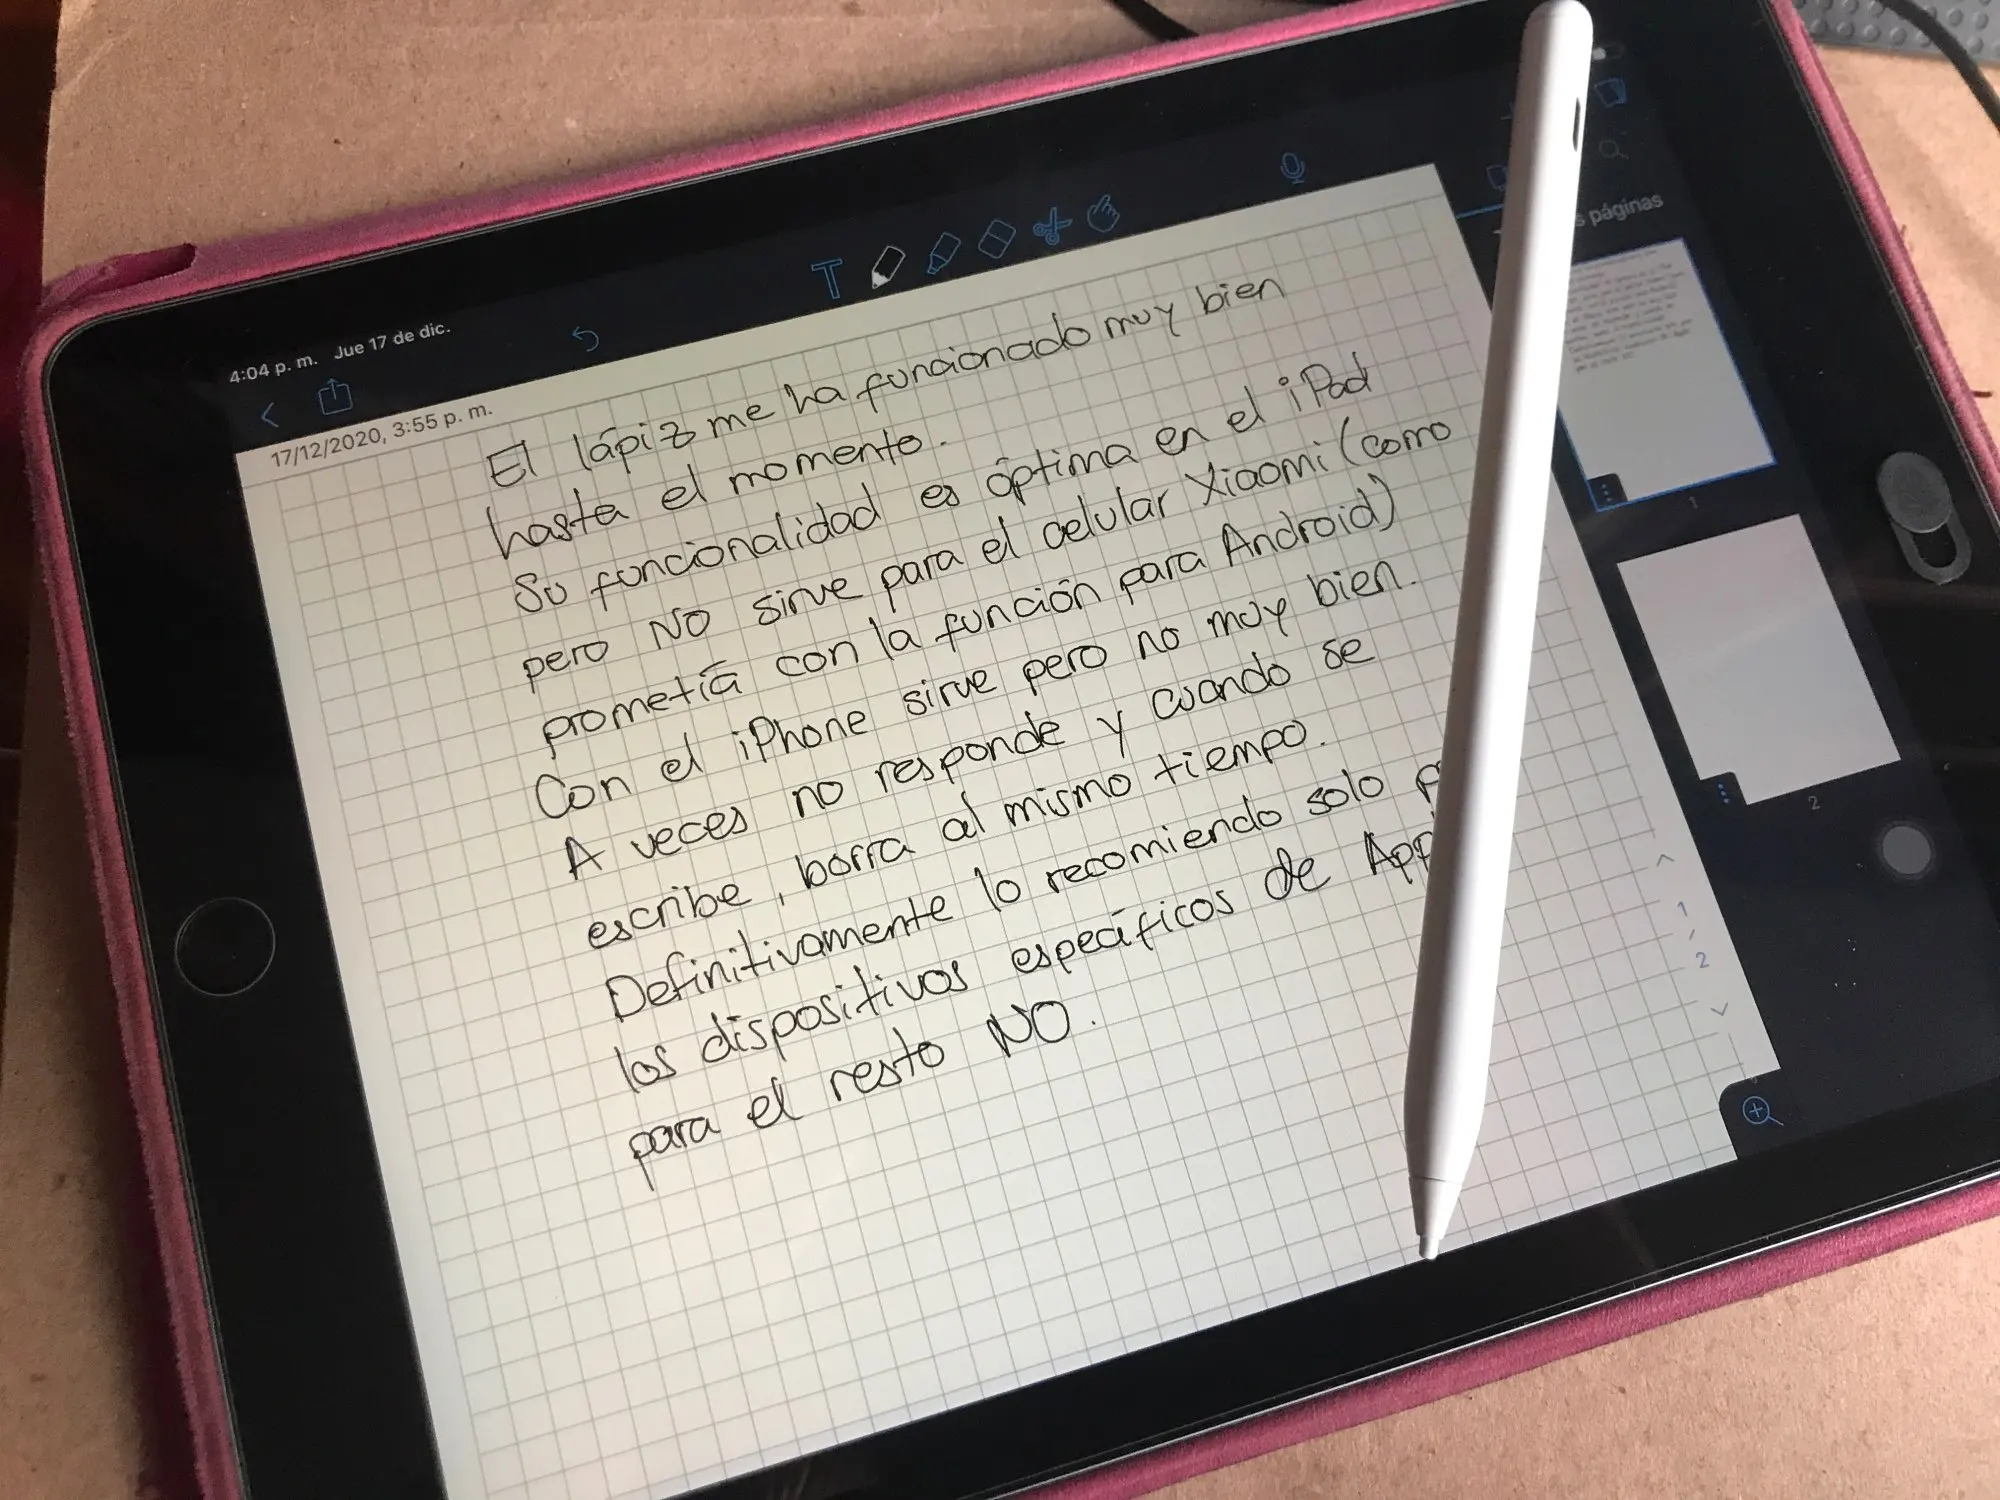 4:04 p. m. Jue 17 de dic.
páginas
17/12/2020, 3:55 p. m.
El lápiz me ha funcionado muy bien
hasta el momento.
Su funcionalidad es óptima en el iPad
pero NO sirve para el celular Xiaomi (como
prometía con la función para Android)
Con el iPhone sirve pero no muy bien.
A veces no responde y cuando se
escribe, borra al mismo tiempo.
Definitivamente lo recomiendo solo
los dispositivos específicos de
para el resto NO.
1
2
1
/
2